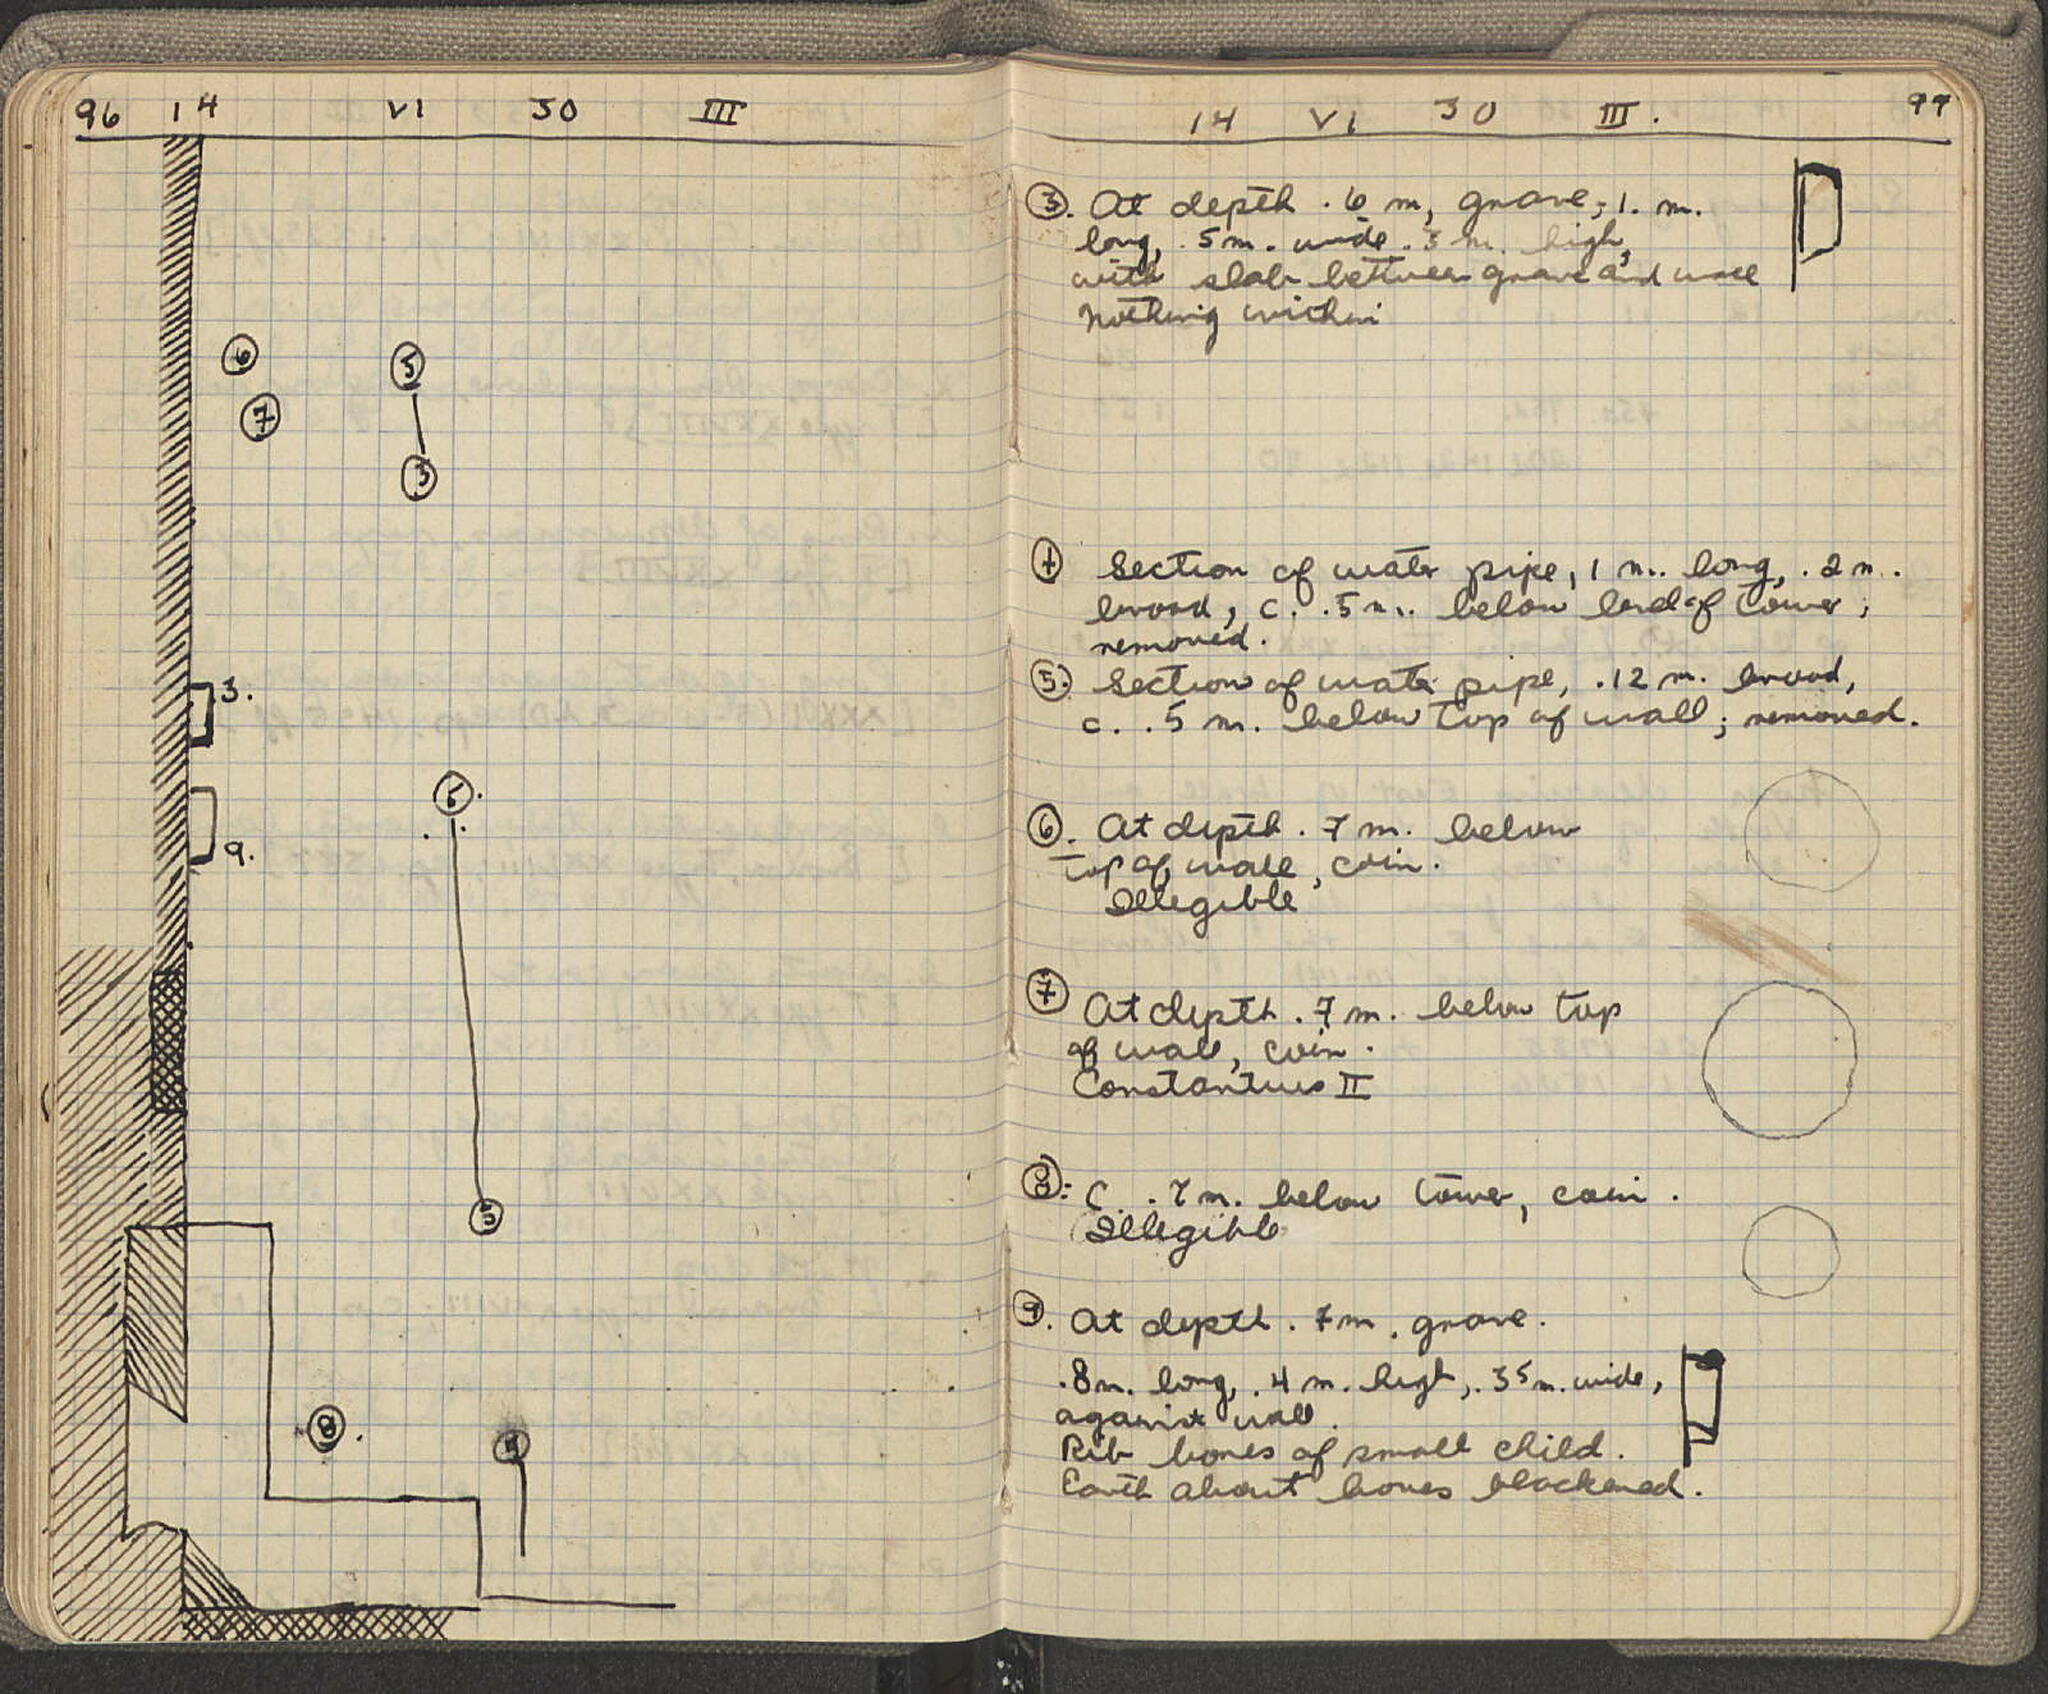 96 14 VI 30 III
6
5
7
3
3.
5.
9.
5
8.
4
14 VI 30 III. 97
3. At depth .6 m, grave, 1. m.
long, .5 m. wide .3 m. high,
with slab between grave and wall
Nothing within
4 Section of water pipe, 1 m. long, .2 m.
broad, c. .5 m. below level of tower;
removed.
5. Section of water pipe, .12 m. broad,
c. .5 m. below top of wall; removed.
6. At depth .7 m. below
top of wall, coin.
Illegible
7 At depth .7 m. below top
of wall, coin.
Constantius II
8. C. .7 m. below tower, coin.
Illegible
9. At depth .7 m. grave.
.8 m. long, .4 m. high, .35 m. wide,
against wall.
Rib bones of small child.
Earth about bones blackened.